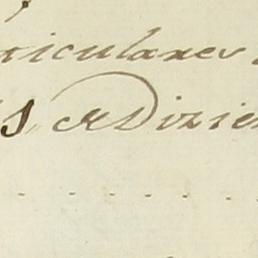 ticulares
s Adizien